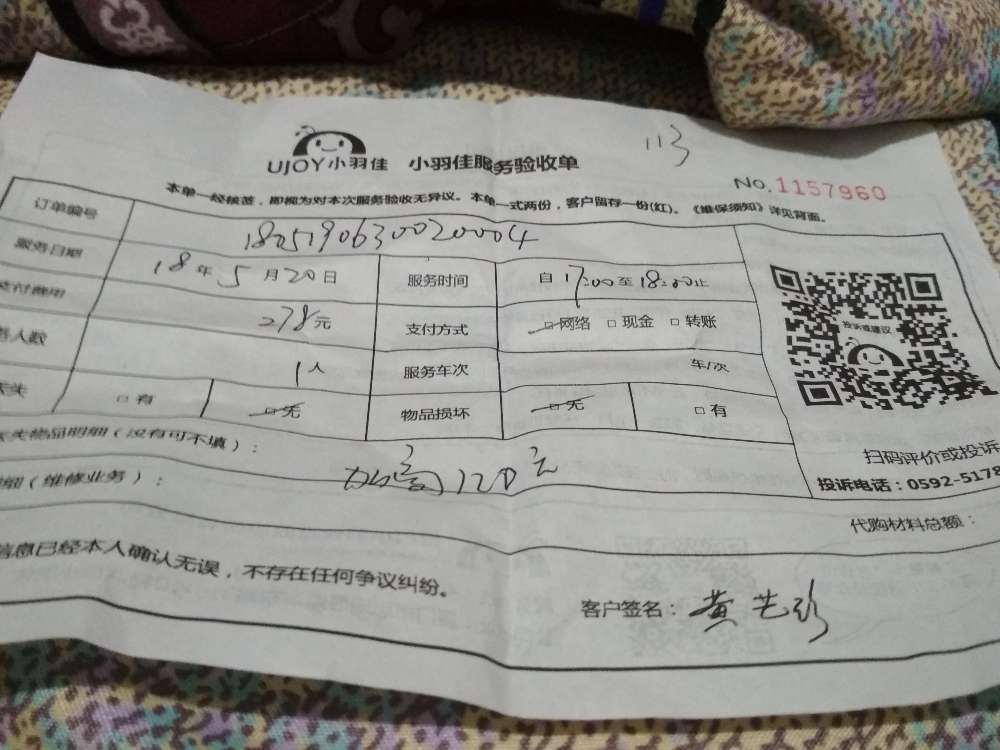 113
UJOY小羽佳 小羽佳服务验收单
No.1157960
本单一经核签，即视为对本次服务验收无异议。本单一式两份，客户留存一份(红)。《维保须知》详见背面。
订单编号 18051906300020004
服务日期 18年5月20日 服务时间 自17:00至18:00止
支付费用 278元 支付方式 □网络 □现金 □转账
务人数 1人 服务车次 车/次
丢失 □有 □无 物品损坏 □无 □有
丢失物品明细（没有可不填）：
投诉或建议
扫码评价或投诉
投诉电话：0592-5178
细（维修业务）： 加氟120元
代购材料总额：
信息已经本人确认无误，不存在任何争议纠纷。
客户签名：黄艺珍